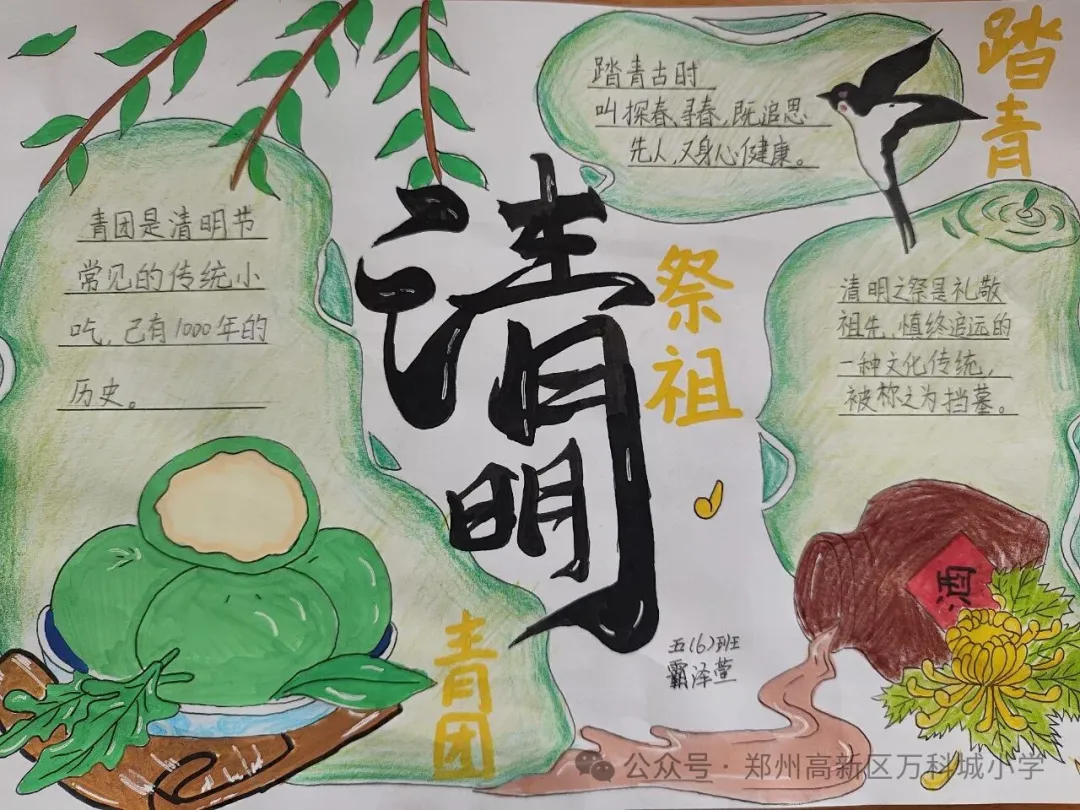 踏青
踏青古时
叫探春、寻春，既追思
先人，又身心健康。
青团是清明节
常见的传统小
吃，已有1000年的
历史。
清明
祭祖
清明之祭是礼敬
祖先、慎终追远的
一种文化传统，
被称之为挡墓。
酒
青团
五(6)班
霸泽萱
公众号·郑州高新区万科城小学